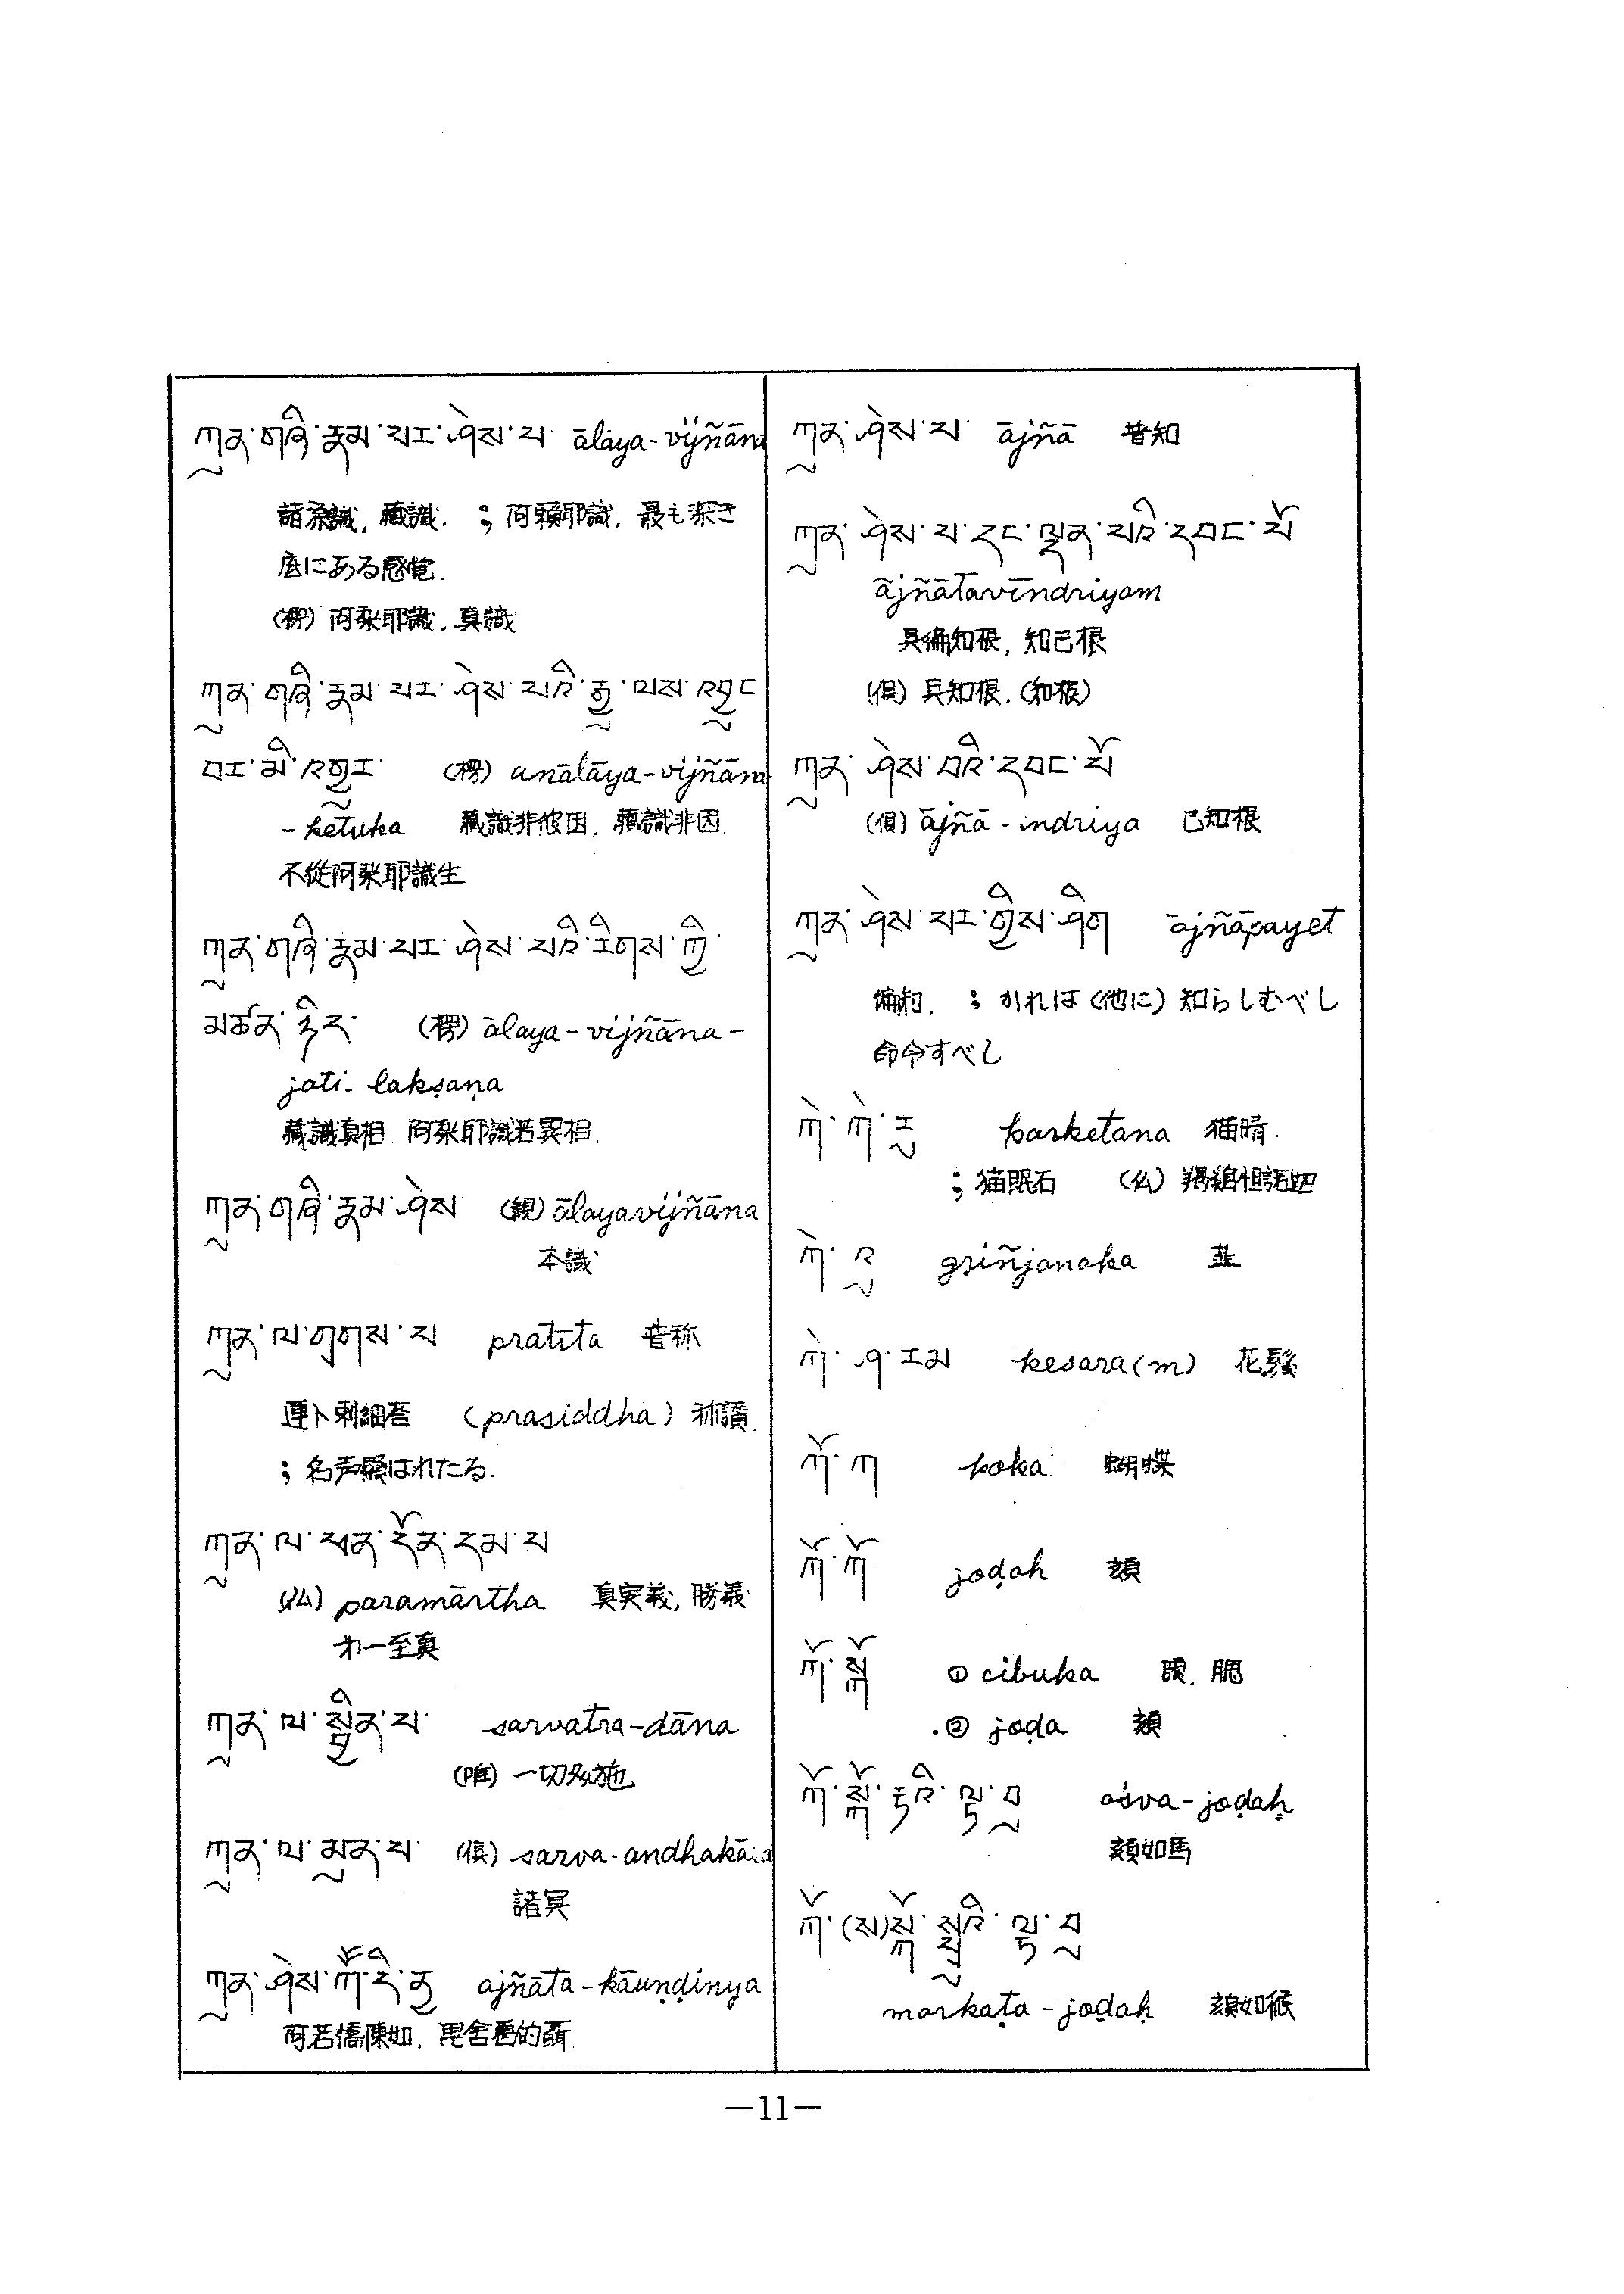 ཀུན་གཞི་རྣམ་པར་ཤེས་པ ālaya-vijñāna
諸承識, 藏識. ; 阿頼耶識, 最も深き
底にある感覚.
(楞) 阿梨耶識, 真識
ཀུན་གཞི་རྣམ་པར་ཤེས་པའི་རྒྱུ་ལས་འབྱུང
བར་མི་འགྱུར་ (楞) anālāya-vijñāna
-ketuka 藏識非彼因, 藏識非因
不從阿梨耶識生
ཀུན་གཞི་རྣམ་པར་ཤེས་པའི་རིགས་ཀྱི་
མཚན་ཉིད་ (楞) ālaya-vijñāna-
jati-lakṣaṇa
藏識真相. 阿梨耶識若異相.
ཀུན་གཞི་རྣམ་ཤེས (観) ālayavijñāna
本識
ཀུན་ལ་གྲགས་པ pratīta 普称
(prasiddha) 称讃.
; 名声顕はれたる.
ཀུན་ལ་ཕན་དོན་དམ་པ
(仏) paramārtha 真実義, 勝義
才一至真
ཀུན་ལ་སྦྱིན་པ་ sarvatra-dāna
一切処施
ཀུན་ལ་མུན་པ (倶) sarva-andhakāra
諸冥
ཀུན་ཤེས་ཀོཽ་དི་ནྱ ajñāta-kāuṇḍinya
阿若憍陳如.
ཀུན་ཤེས་པ ājñā 普知
ཀུན་ཤེས་པ་དང་ལྡན་པའི་དབང་པོ
ājñātavīndriyam
具徧知根, 知已根
(倶) 具知根. (知根)
ཀུན་ཤེས་བའི་དབང་པོ
(倶) ājñā-indriya 已知根
ཀུན་ཤེས་པར་གྱིས་ཤིག ājñāpayet
徧知. ; かれは (他に) 知らしむべし
命令すべし
ཀེ་ཀེ་རུ karketana 猫睛.
; 猫眼石 (仏)
ཀེ་འུ gṛiñjanaka 韭
ཀེ་ཤ་རམ kesara(m) 花鬚
ཀོ་ཀ koka 蝴蝶
ཀོ་ཀོ joḍah 頦
ཀོ་སྐོ ① cibuka 頤. 腮
② joḍa 頦
ཀོ་སྐོ་རྟའི་ལྟ་བུ aśva-joḍaḥ
頦如馬
ཀོ་(ས)སྐོ་སྤྲུའི་ལྟ་བུ
markaṭa-joḍaḥ 頦如猴
—11—